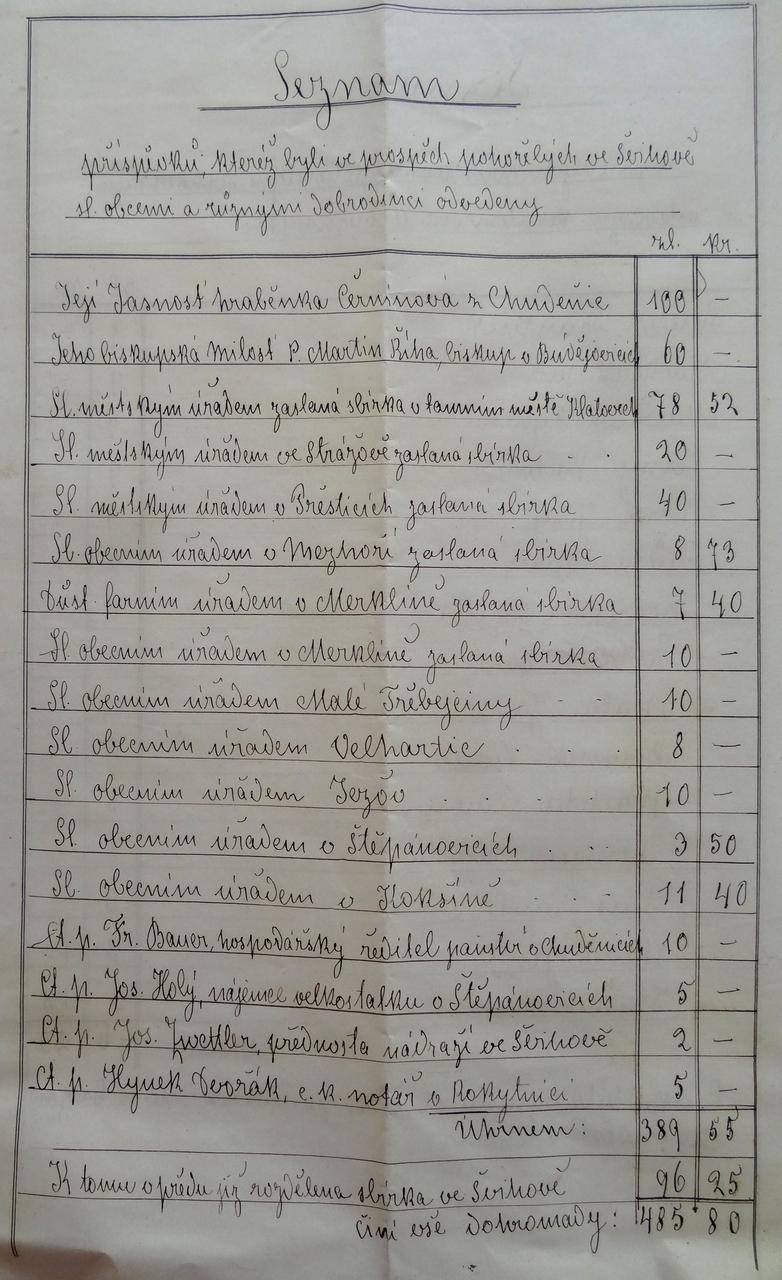 Seznam
příspěvků, kteréž byli ve prospěch pohořelých ve Švihově
sl. obcemi a různými dobrodinci odvedeny
zl. kr.
Její Jasnost hraběnka Černínová z Chudenic 100 —
Jeho biskupská Milost P. Martin Říha, biskup v Budějovicích 60 —
Sl. městským úřadem zaslaná sbírka v tamním městě Klatovech 78 52
Sl. městským úřadem ve Strážově zaslaná sbírka . . 20 —
Sl. městským úřadem v Přešticích zaslaná sbírka 40 —
Sl. obecním úřadem v Mezhoří zaslaná sbírka 8 73
Důst. farním úřadem v Merklíně zaslaná sbírka 7 40
Sl. obecním úřadem v Merklíně zaslaná sbírka 10 —
Sl. obecním úřadem Malé Třebejčiny - - 10 —
Sl. obecním úřadem Velhartic . . . 8 —
Sl. obecním úřadem Jezov . . . . 10 —
Sl. obecním úřadem v Štěpánovicích . . . 3 50
Sl. obecním úřadem v Kokšíně . . - 11 40
Ct. p. Fr. Bauer, hospodářský ředitel panství v Chuděnicích 10 —
Ct. p. Jos. Holý, nájemce velkostatku v Štěpánovicích 5 —
Ct. p. Jos. Zwettler, přednosta nádraží ve Švihově 2 —
Ct. p. Hynek Dvořák, c. k. notář v Rokytnici 5 —
Úhrnem: 389 55
K tomu v předu již rozdělena sbírka ve Švihově 96 25
Činí vše dohromady: 485 80